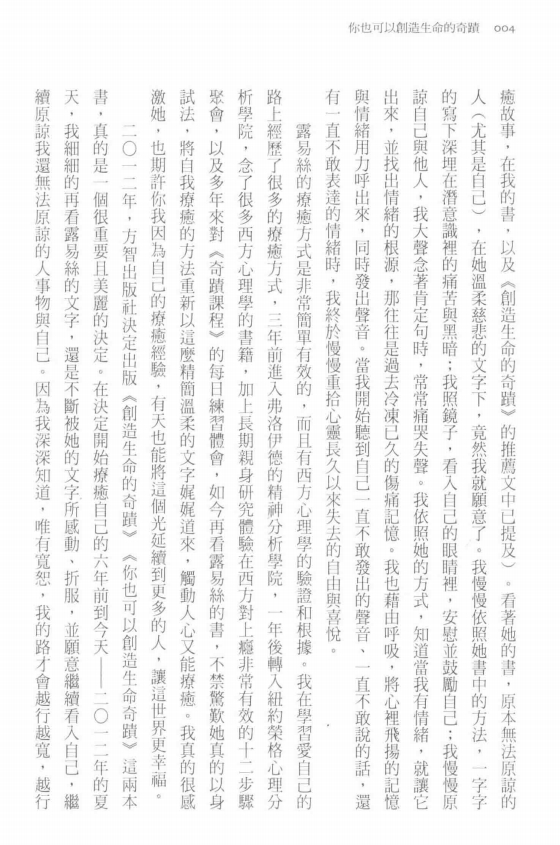 你也可以創造生命的奇蹟 004
癒故事，在我的書，以及《創造生命的奇蹟》的推薦文中已提及）。看著她的書，原本無法原諒的
人（尤其是自己），在她溫柔慈悲的文字下，竟然我就願意了。我慢慢依照她書中的方法，一字字
的寫下深埋在潛意識裡的痛苦與黑暗；我照鏡子，看入自己的眼睛裡，安慰並鼓勵自己；我慢慢原
諒自己與他人，我大聲念著肯定句時，常常痛哭失聲。我依照她的方式，知道當我有情緒，就讓它
出來，並找出情緒的根源，那往往是過去冷凍已久的傷痛記憶。我也藉由呼吸，將心裡飛揚的記憶
與情緒用力呼出來，同時發出聲音。當我開始聽到自己一直不敢發出的聲音、一直不敢說的話，還
有一直不敢表達的情緒時，我終於慢慢重拾心靈長久以來失去的自由與喜悅。
露易絲的療癒方式是非常簡單有效的，而且有西方心理學的驗證和根據。我在學習愛自己的
路上經歷了很多的療癒方式，三年前進入弗洛伊德的精神分析學院，一年後轉入紐約榮格心理分
析學院，念了很多西方心理學的書籍，加上長期親身研究體驗在西方對上癮非常有效的十二步驟
聚會，以及多年來對《奇蹟課程》的每日練習體會，如今再看露易絲的書，不禁驚歎她真的以身
試法，將自我療癒的方法重新以這麼精簡溫柔的文字娓娓道來，觸動人心又能療癒。我真的很感
激她，也期許你我因為自己的療癒經驗，有天也能將這個光延續到更多的人，讓這世界更幸福。
二〇一二年，方智出版社決定出版《創造生命的奇蹟》《你也可以創造生命奇蹟》這兩本
書，真的是一個很重要且美麗的決定。在決定開始療癒自己的六年前到今天——二〇一二年的夏
天，我細細的再看露易絲的文字，還是不斷被她的文字所感動、折服，並願意繼續看入自己，繼
續原諒我還無法原諒的人事物與自己。因為我深深知道，唯有寬恕，我的路才會越行越寬，越行